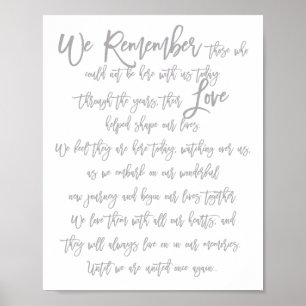 We Remember those who
could not be here with us today
Through the years, their Love
helped shape our lives.
We feel they are here today, watching over us,
as we embark on our wonderful
new journey and begin our lives together
We love them with all our hearts, and
they will always live on in our memories.
Until we are united once again...